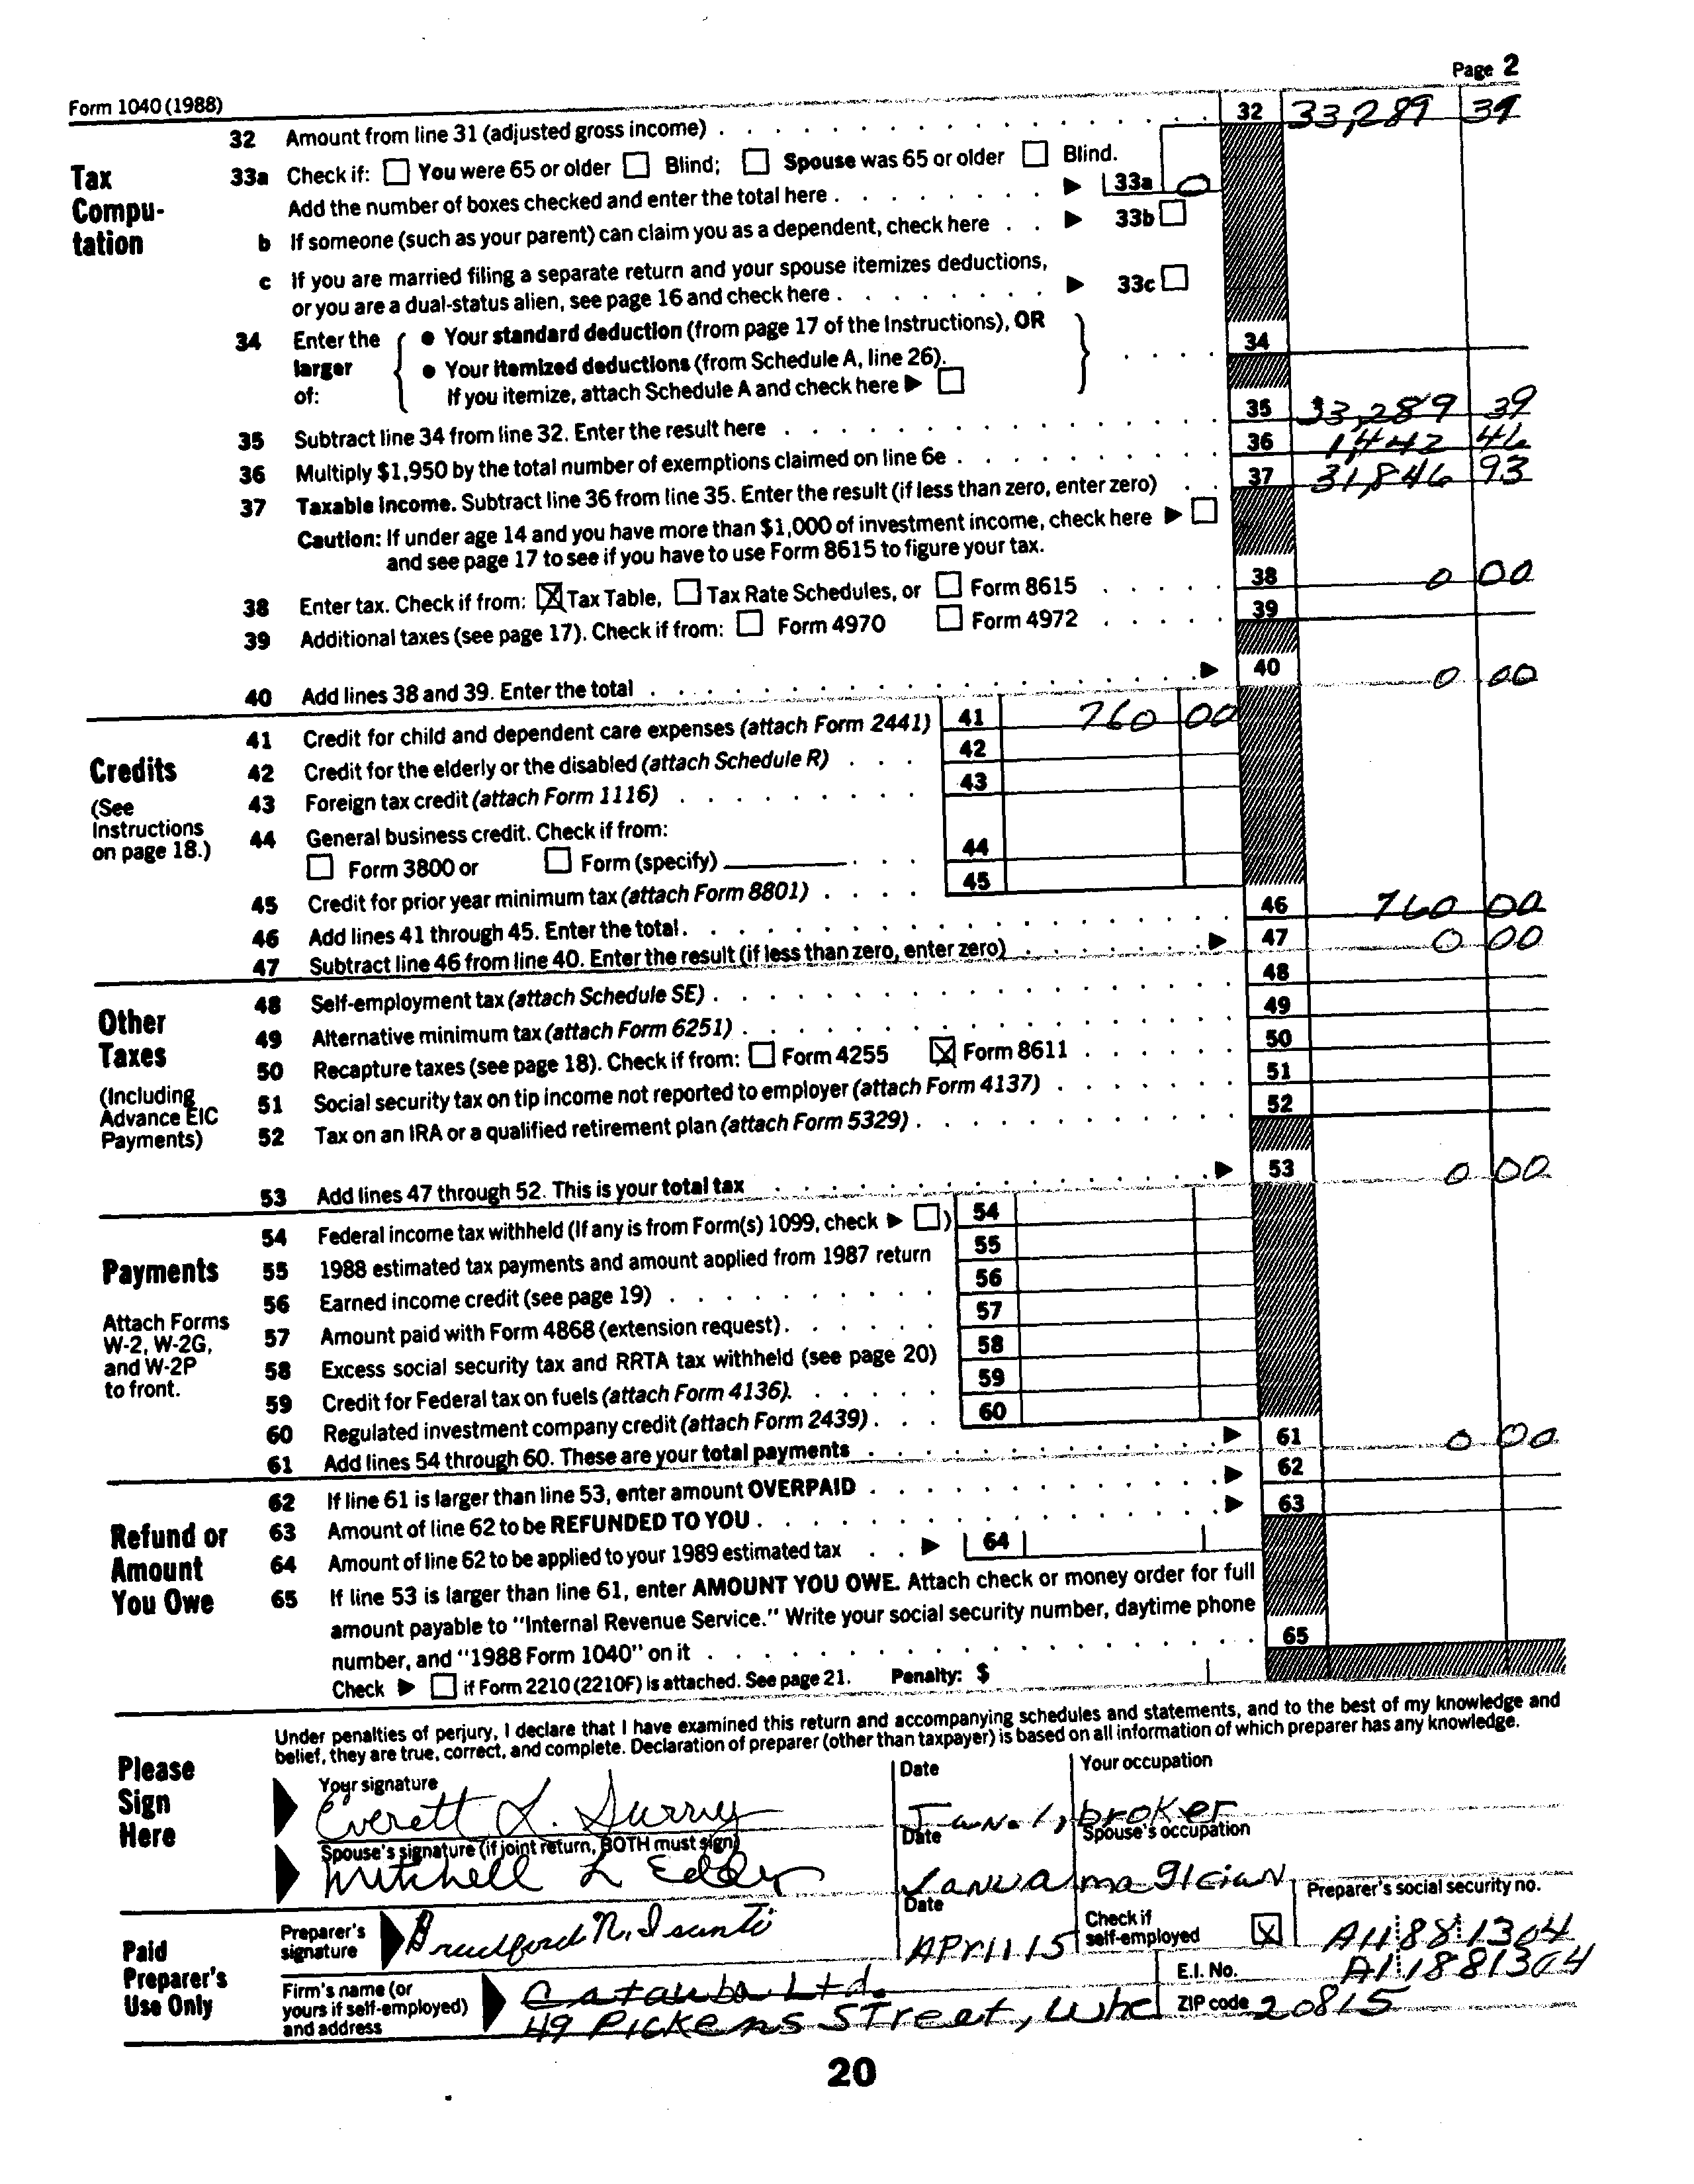 Page 2
Form 1040 (1988)
32 Amount from line 31 (adjusted gross income) 32 33,289 39
Tax Compu- tation
33a Check if: You were 65 or older Blind; Spouse was 65 or older Blind.
Add the number of boxes checked and enter the total here 33a 0
b If someone (such as your parent) can claim you as a dependent, check here 33b
c If you are married filing a separate return and your spouse itemizes deductions,
or you are a dual-status alien, see page 16 and check here 33c
34 Enter the larger of:
• Your standard deduction (from page 17 of the Instructions), OR
• Your itemized deductions (from Schedule A, line 26).
If you itemize, attach Schedule A and check here
34
35 Subtract line 34 from line 32. Enter the result here 35 33,289 39
36 Multiply $1,950 by the total number of exemptions claimed on line 6e 36 1,442 46
37 Taxable income. Subtract line 36 from line 35. Enter the result (if less than zero, enter zero) 37 31,846 93
Caution: If under age 14 and you have more than $1,000 of investment income, check here
and see page 17 to see if you have to use Form 8615 to figure your tax.
38 Enter tax. Check if from: X Tax Table, Tax Rate Schedules, or Form 8615 38 0 00
39 Additional taxes (see page 17). Check if from: Form 4970 Form 4972 39
40 Add lines 38 and 39. Enter the total 40 0 00
Credits
(See Instructions on page 18.)
41 Credit for child and dependent care expenses (attach Form 2441) 41 760 00
42 Credit for the elderly or the disabled (attach Schedule R) 42
43 Foreign tax credit (attach Form 1116) 43
44 General business credit. Check if from:
Form 3800 or Form (specify) 44
45 Credit for prior year minimum tax (attach Form 8801) 45
46 Add lines 41 through 45. Enter the total. 46 760 00
47 Subtract line 46 from line 40. Enter the result (if less than zero, enter zero) 47 0 00
Other Taxes
(Including Advance EIC Payments)
48 Self-employment tax (attach Schedule SE) 48
49 Alternative minimum tax (attach Form 6251) 49
50 Recapture taxes (see page 18). Check if from: Form 4255 X Form 8611 50
51 Social security tax on tip income not reported to employer (attach Form 4137) 51
52 Tax on an IRA or a qualified retirement plan (attach Form 5329) 52
53 Add lines 47 through 52. This is your total tax 53 0 00
Payments
Attach Forms W-2, W-2G, and W-2P to front.
54 Federal income tax withheld (If any is from Form(s) 1099, check ) 54
55 1988 estimated tax payments and amount applied from 1987 return 55
56 Earned income credit (see page 19) 56
57 Amount paid with Form 4868 (extension request) 57
58 Excess social security tax and RRTA tax withheld (see page 20) 58
59 Credit for Federal tax on fuels (attach Form 4136). 59
60 Regulated investment company credit (attach Form 2439) 60
61 Add lines 54 through 60. These are your total payments 61 0 00
Refund or Amount You Owe
62 If line 61 is larger than line 53, enter amount OVERPAID 62
63 Amount of line 62 to be REFUNDED TO YOU 63
64 Amount of line 62 to be applied to your 1989 estimated tax 64
65 If line 53 is larger than line 61, enter AMOUNT YOU OWE. Attach check or money order for full
amount payable to "Internal Revenue Service." Write your social security number, daytime phone
number, and "1988 Form 1040" on it 65
Check if Form 2210 (2210F) is attached. See page 21. Penalty: $
Please Sign Here
Under penalties of perjury, I declare that I have examined this return and accompanying schedules and statements, and to the best of my knowledge and
belief, they are true, correct, and complete. Declaration of preparer (other than taxpayer) is based on all information of which preparer has any knowledge.
Your signature Date Your occupation
Everett L. Surry Jan. 1, broker
Spouse's signature (if joint return, BOTH must sign) Date Spouse's occupation
Mitchell L Edder Janua magician
Paid Preparer's Use Only
Preparer's signature Date Check if self-employed X Preparer's social security no.
Bradford N. Isanti April 15 A11 88 1304
Firm's name (or yours if self-employed) and address E.I. No. A11881304
Catauba Ltd.
49 Pickens Street, Whe ZIP code 20815
20